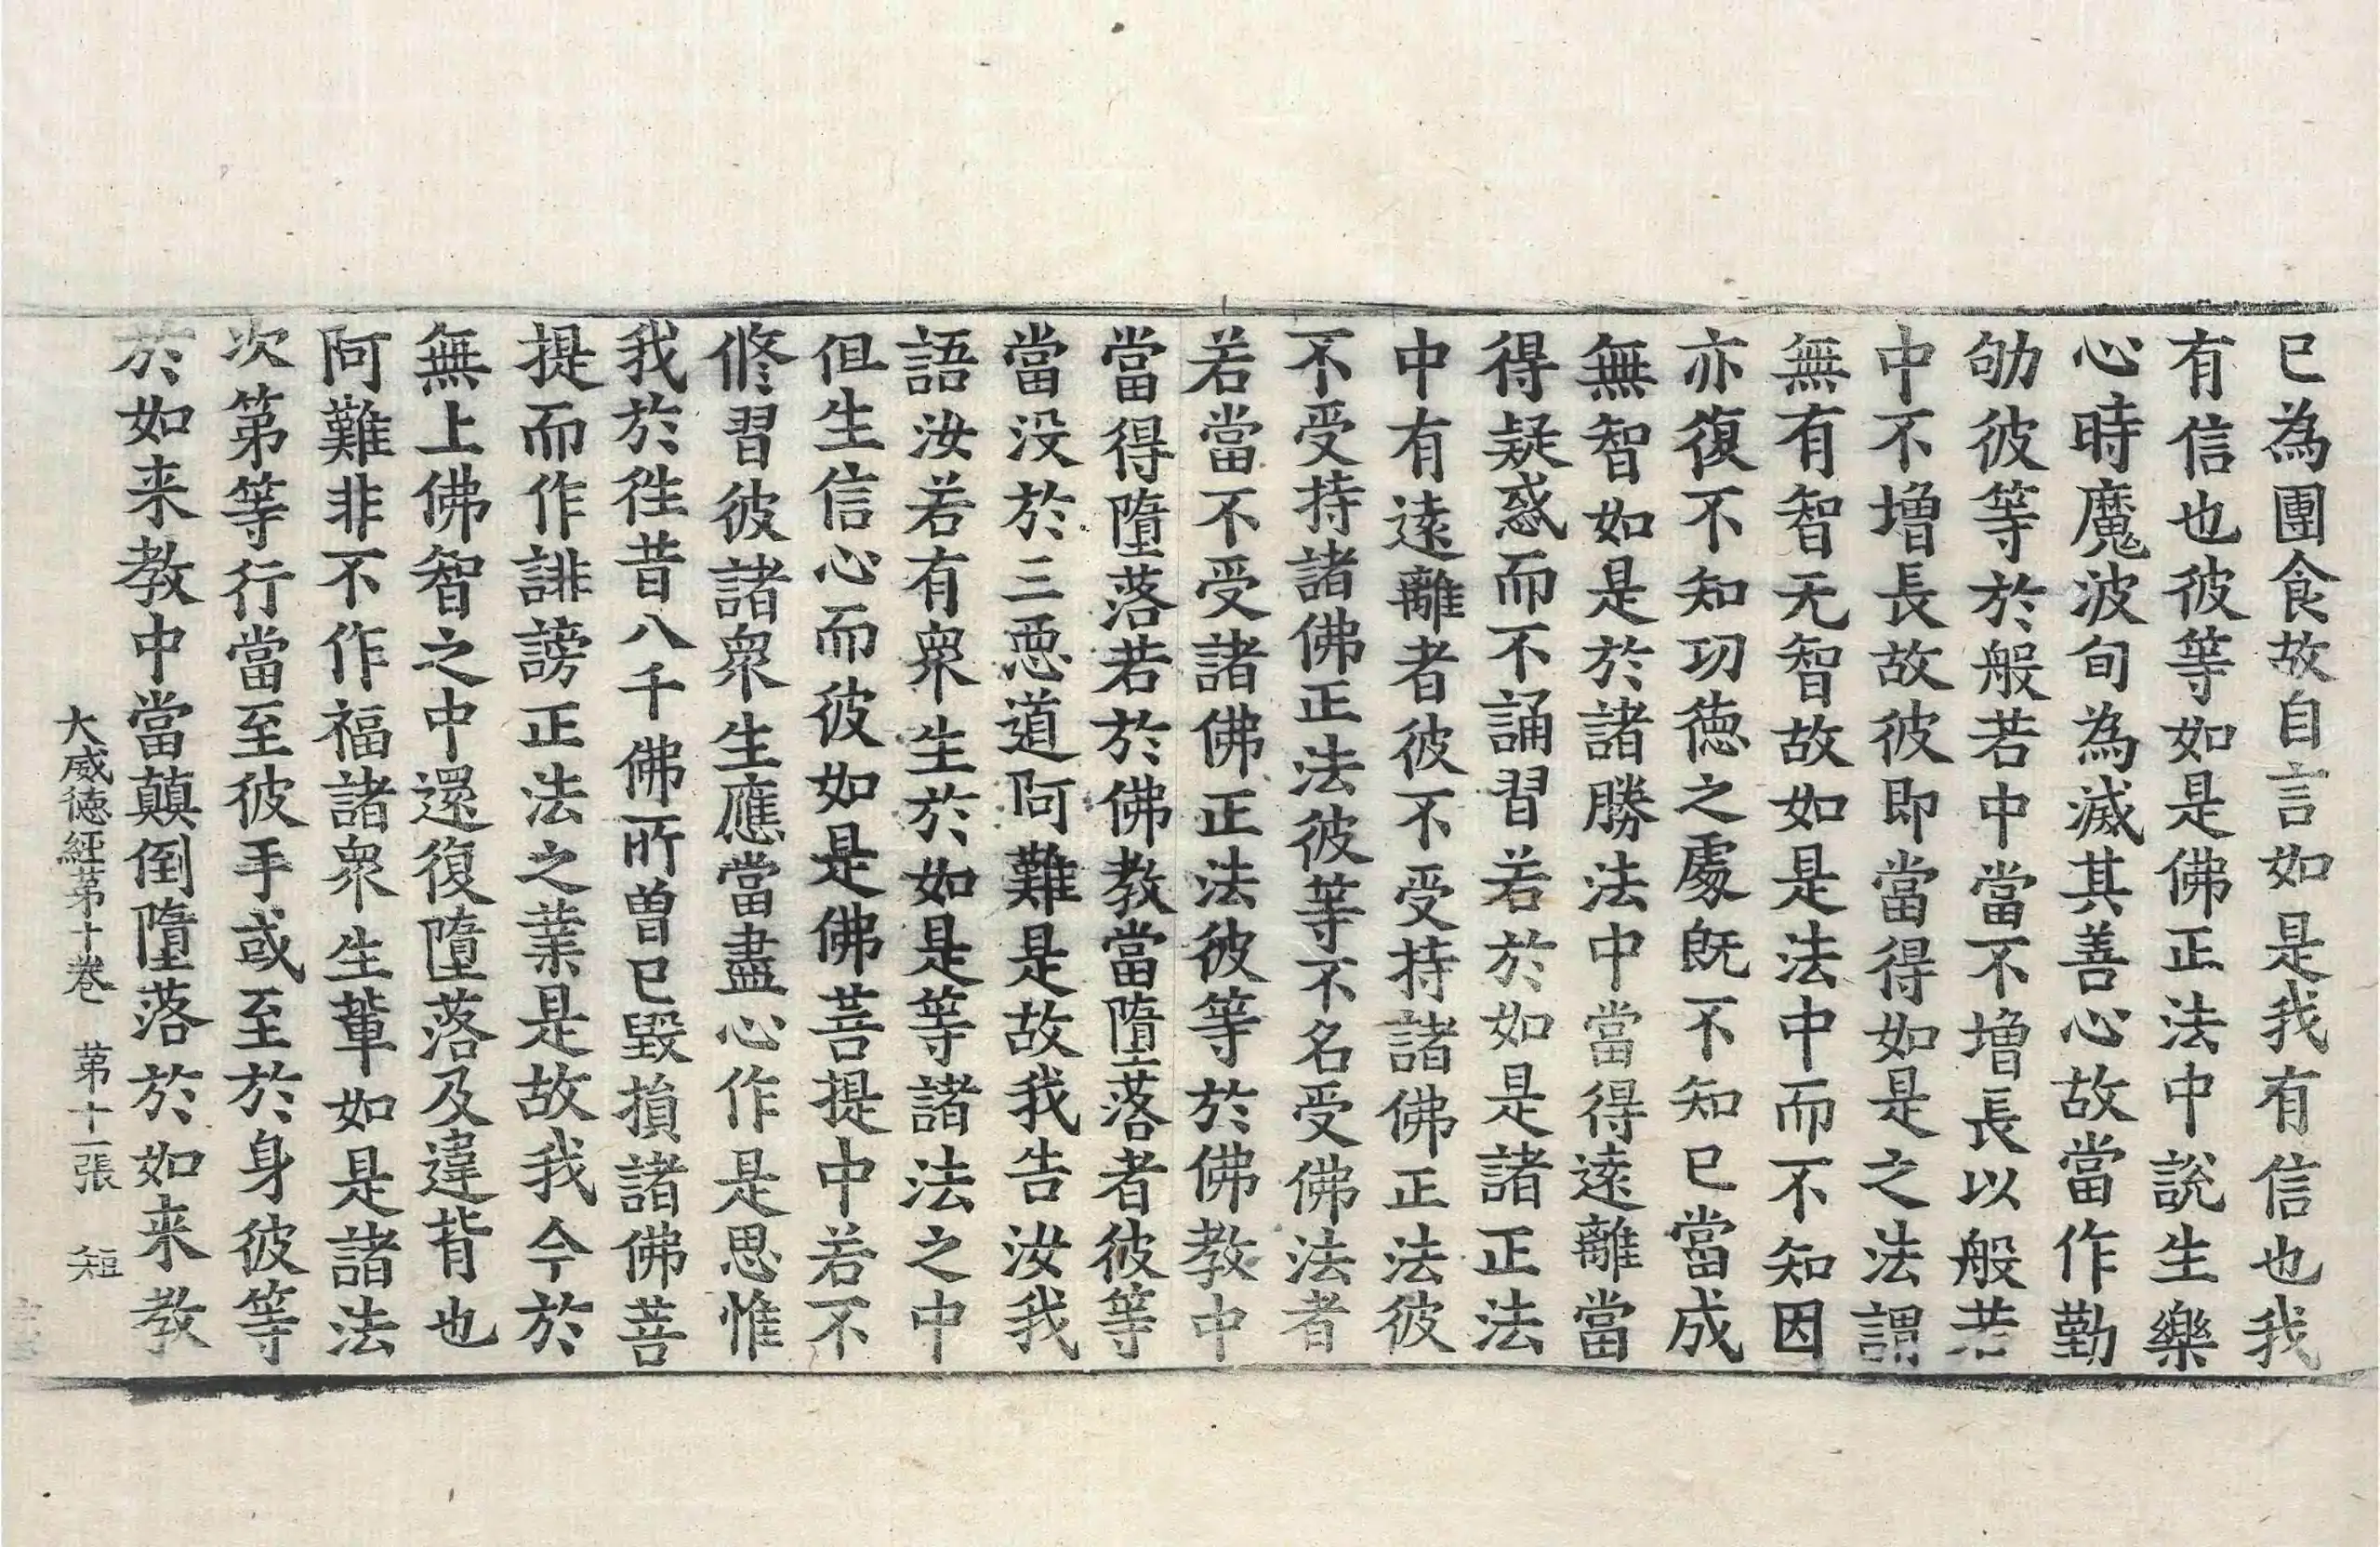 已為團食故自言如是我有信也我
有信也彼等如是佛正法中說生樂
心時魔波旬為滅其善心故當作勤
劬彼等於般若中當不增長以般若
中不增長故彼即當得如是之法謂
無有智无智故如是法中而不知因
亦復不知功德之處既不知已當成
無智如是於諸勝法中當得遠離當
得疑惑而不誦習若於如是諸正法
中有遠離者彼不受持諸佛正法彼
不受持諸佛正法彼等不名受佛法者
若當不受諸佛正法彼等於佛教中
當得墮落若於佛教當墮落者彼等
當没於三惡道阿難是故我告汝我
語汝若有衆生於如是等諸法之中
但生信心而彼如是佛菩提中若不
修習彼諸衆生應當盡心作是思惟
我於徃昔八千佛所曾已毀損諸佛菩
提而作誹謗正法之業是故我今於
無上佛智之中還復墮落及違背也
阿難非不作福諸衆生軰如是諸法
次第等行當至彼手或至於身彼等
於如来教中當顛倒墮落於如来教
大威德經第十卷 第十一張 短